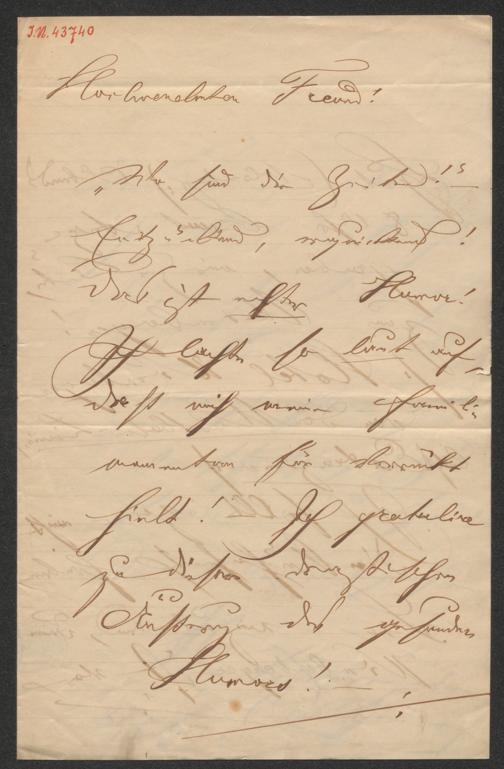 J.N. 43740
Hochverehrter Freund!
"Wo sind die Zeiten!"
Entzückend, erquickend!
Das ist echter Humor!
Ich lachte so laut auf,
daß mich meine Famili-
momentan für verrückt
hielt! Ich gratulire
zu dieser drastischen
Äußerung des gesunden
Humors! —